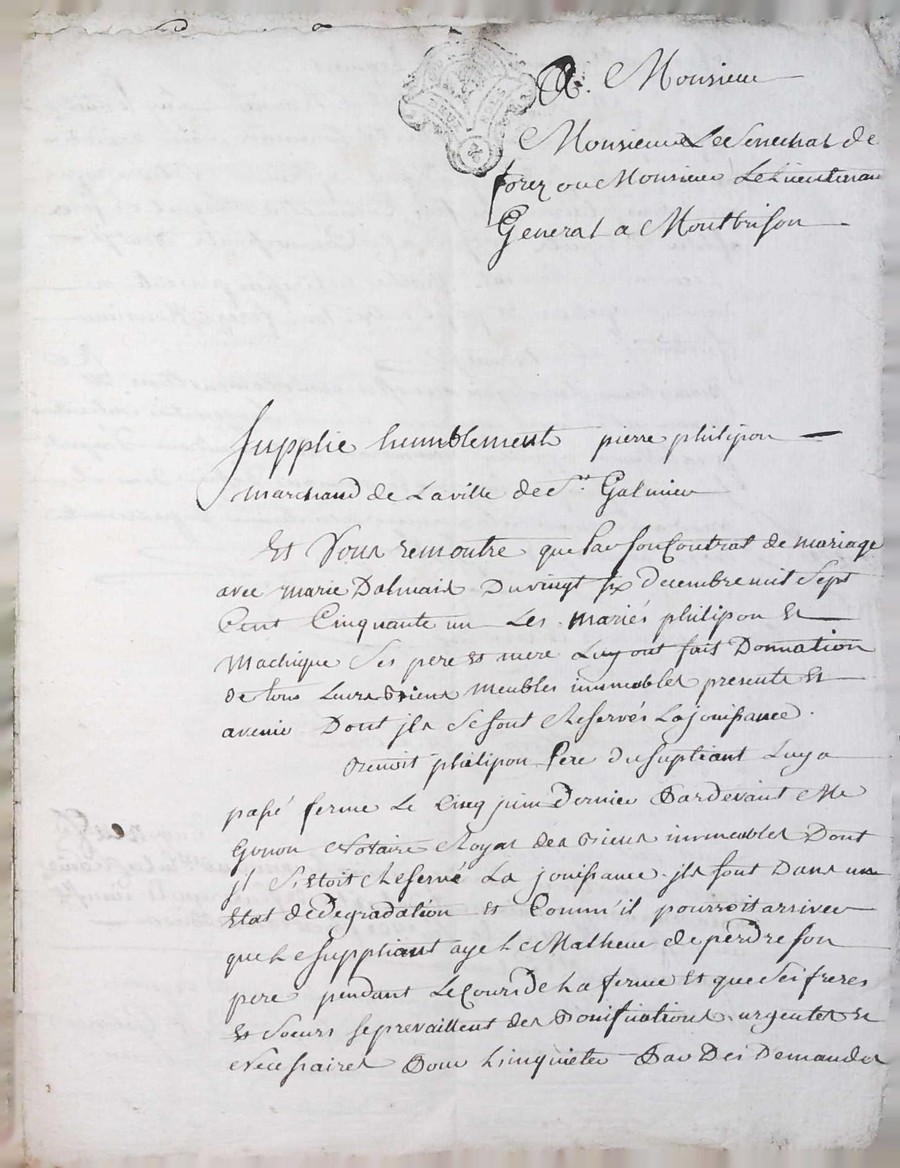 A. Monsieur
Monsieur Le Senechal de
forez ou Monsieur Le Lieutenan
General a Montbrison
Supplie humblement pierre philipon
marchand de La ville de St Galmier
Et Vous remontre que Par son Contrat de mariage
avec marie Dalmais Du vingt six Decembre mil Sept
Cent Cinquante un Les mariés philipon Et
Machique Ses pere Et mere Luy ont fait Donnation
de tous Leurs Biens meubles immeubles presents Et
avenir Dont jls Se sont Reservés La jouissance.
Benoit philipon Pere du supliant Luy a
passé ferme Le Cinq juin Dernier Pardevant Me
Gonon Notaire Royal des Biens immeubles Dont
jl S'Etoit Reservé La jouissance. jls sont Dans un
Etat de Degradation Et Comm'il pourroit arriver
que Le suppliant aye Le Malheur de perdre son
pere pendant Le Cours de La ferme Et que Ses freres
Et Soeurs se prevaillent des Bonifications urgentes Et
Necessaires Pour L'inquieter Par Des Demandes